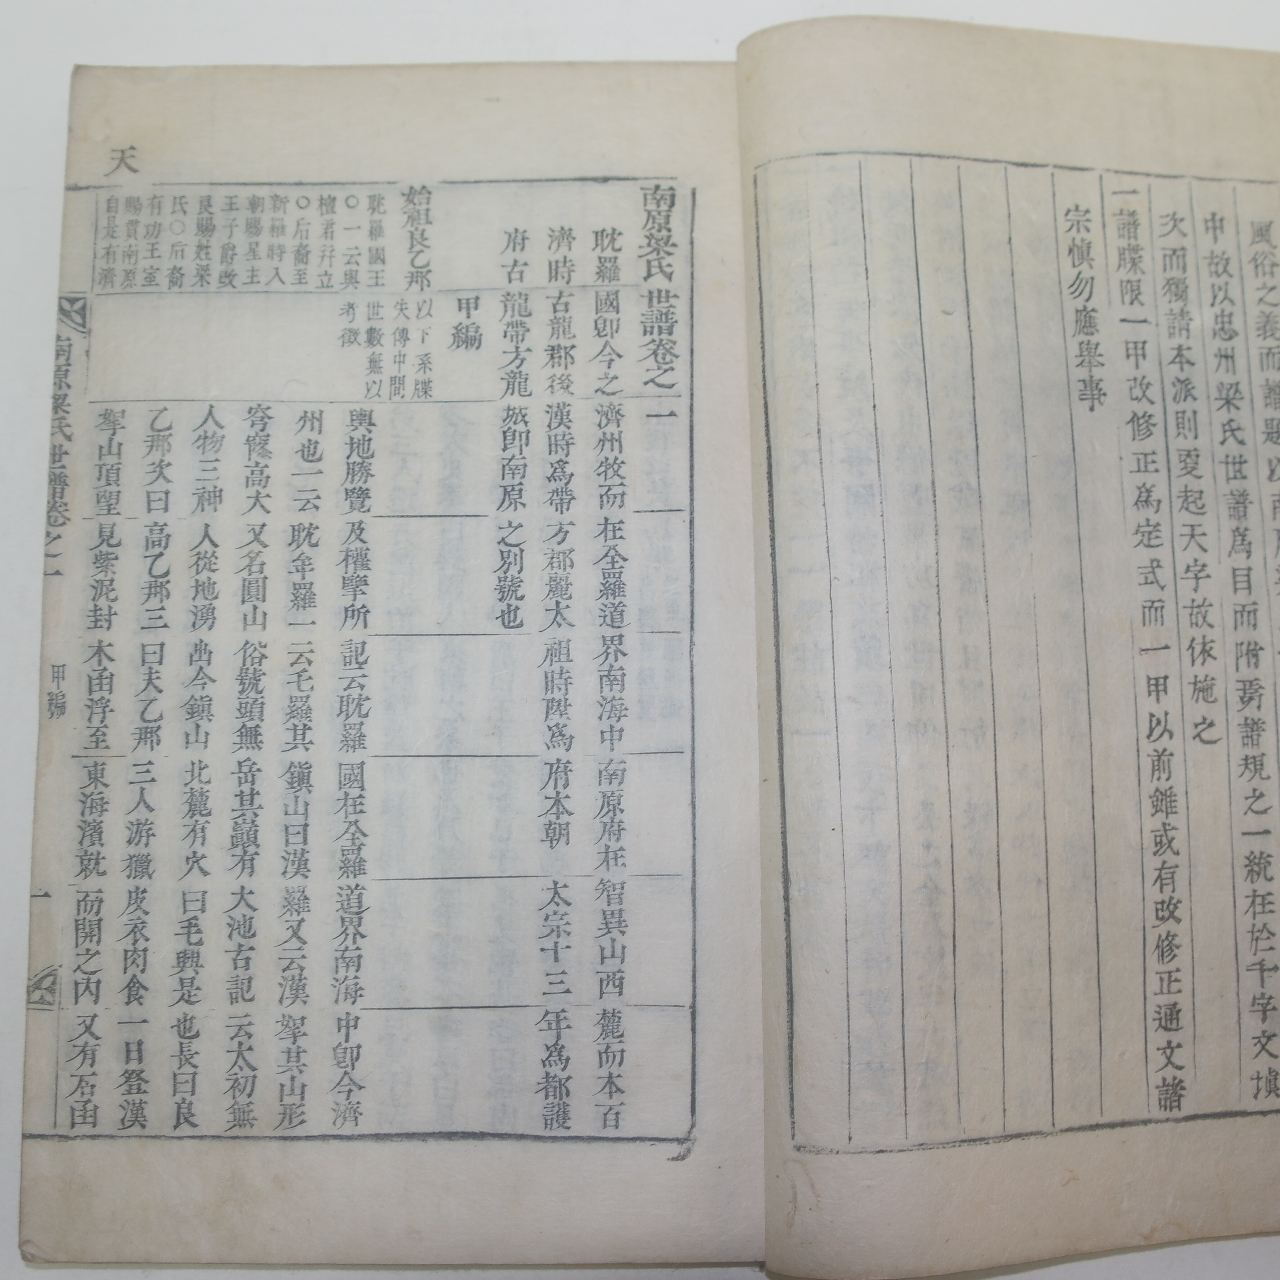 風俗之義而
中故以忠州梁氏世譜爲目而附焉譜規之一統在於千字文塡
次而獨請本派則更起天字故依施之
一譜牒限一甲改修正爲定式而一甲以前雖或有改修正通文諸
宗愼勿應擧事
天
南原梁氏世譜卷之一
耽羅國卽今之濟州牧而在全羅道界南海中南原府在智異山西麓而本百
濟時古龍郡後漢時爲帶方郡麗太祖時陞爲府本朝太宗十三年爲都護
府古龍帶方龍城卽南原之別號也
甲編
始祖良乙那
耽羅國王
〇一云與
檀君幷立
〇后裔至
新羅時入
朝賜星主
王子爵改
良賜姓梁
氏〇后裔
有功王室
賜貫南原
自是有濟
以下系牒
失傳中間
世數無以
考徵
輿地勝覽及權擥所記云耽羅國在全羅道界南海中卽今濟
州也一云耽牟羅一云乇羅其鎭山曰漢羅又云漢拏其山形
穹窿高大又名圓山俗號頭無岳其巓有大池古記云太初無
人物三神人從地湧出今鎭山北麓有穴曰毛興是也長曰良
乙那次曰高乙那三曰夫乙那三人游獵皮衣肉食一日登漢
拏山頂望見紫泥封木函浮至東海濱就而開之內又有石函
南原梁氏世譜卷之一
甲編
一